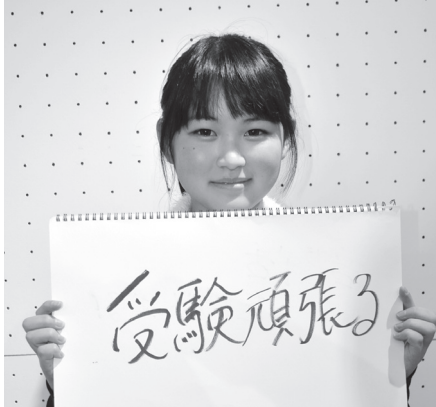 受験頑張る